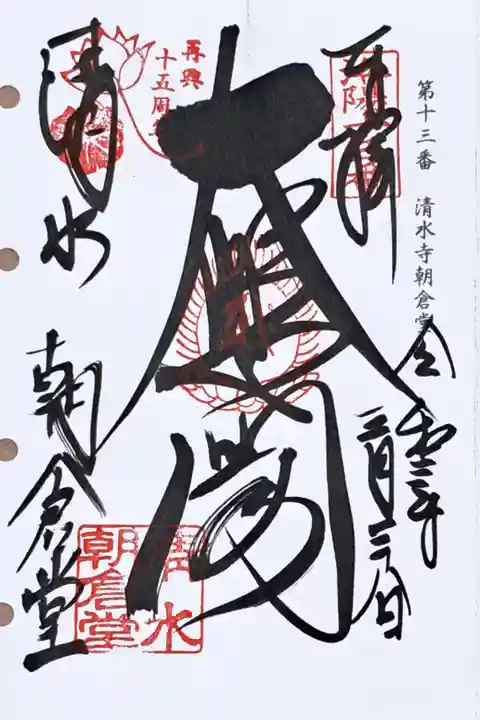 第十三番 清水寺朝倉堂
奉拝
令和三年
大悲閣
再興
十五周年
清水
朝倉堂
清水
朝倉堂